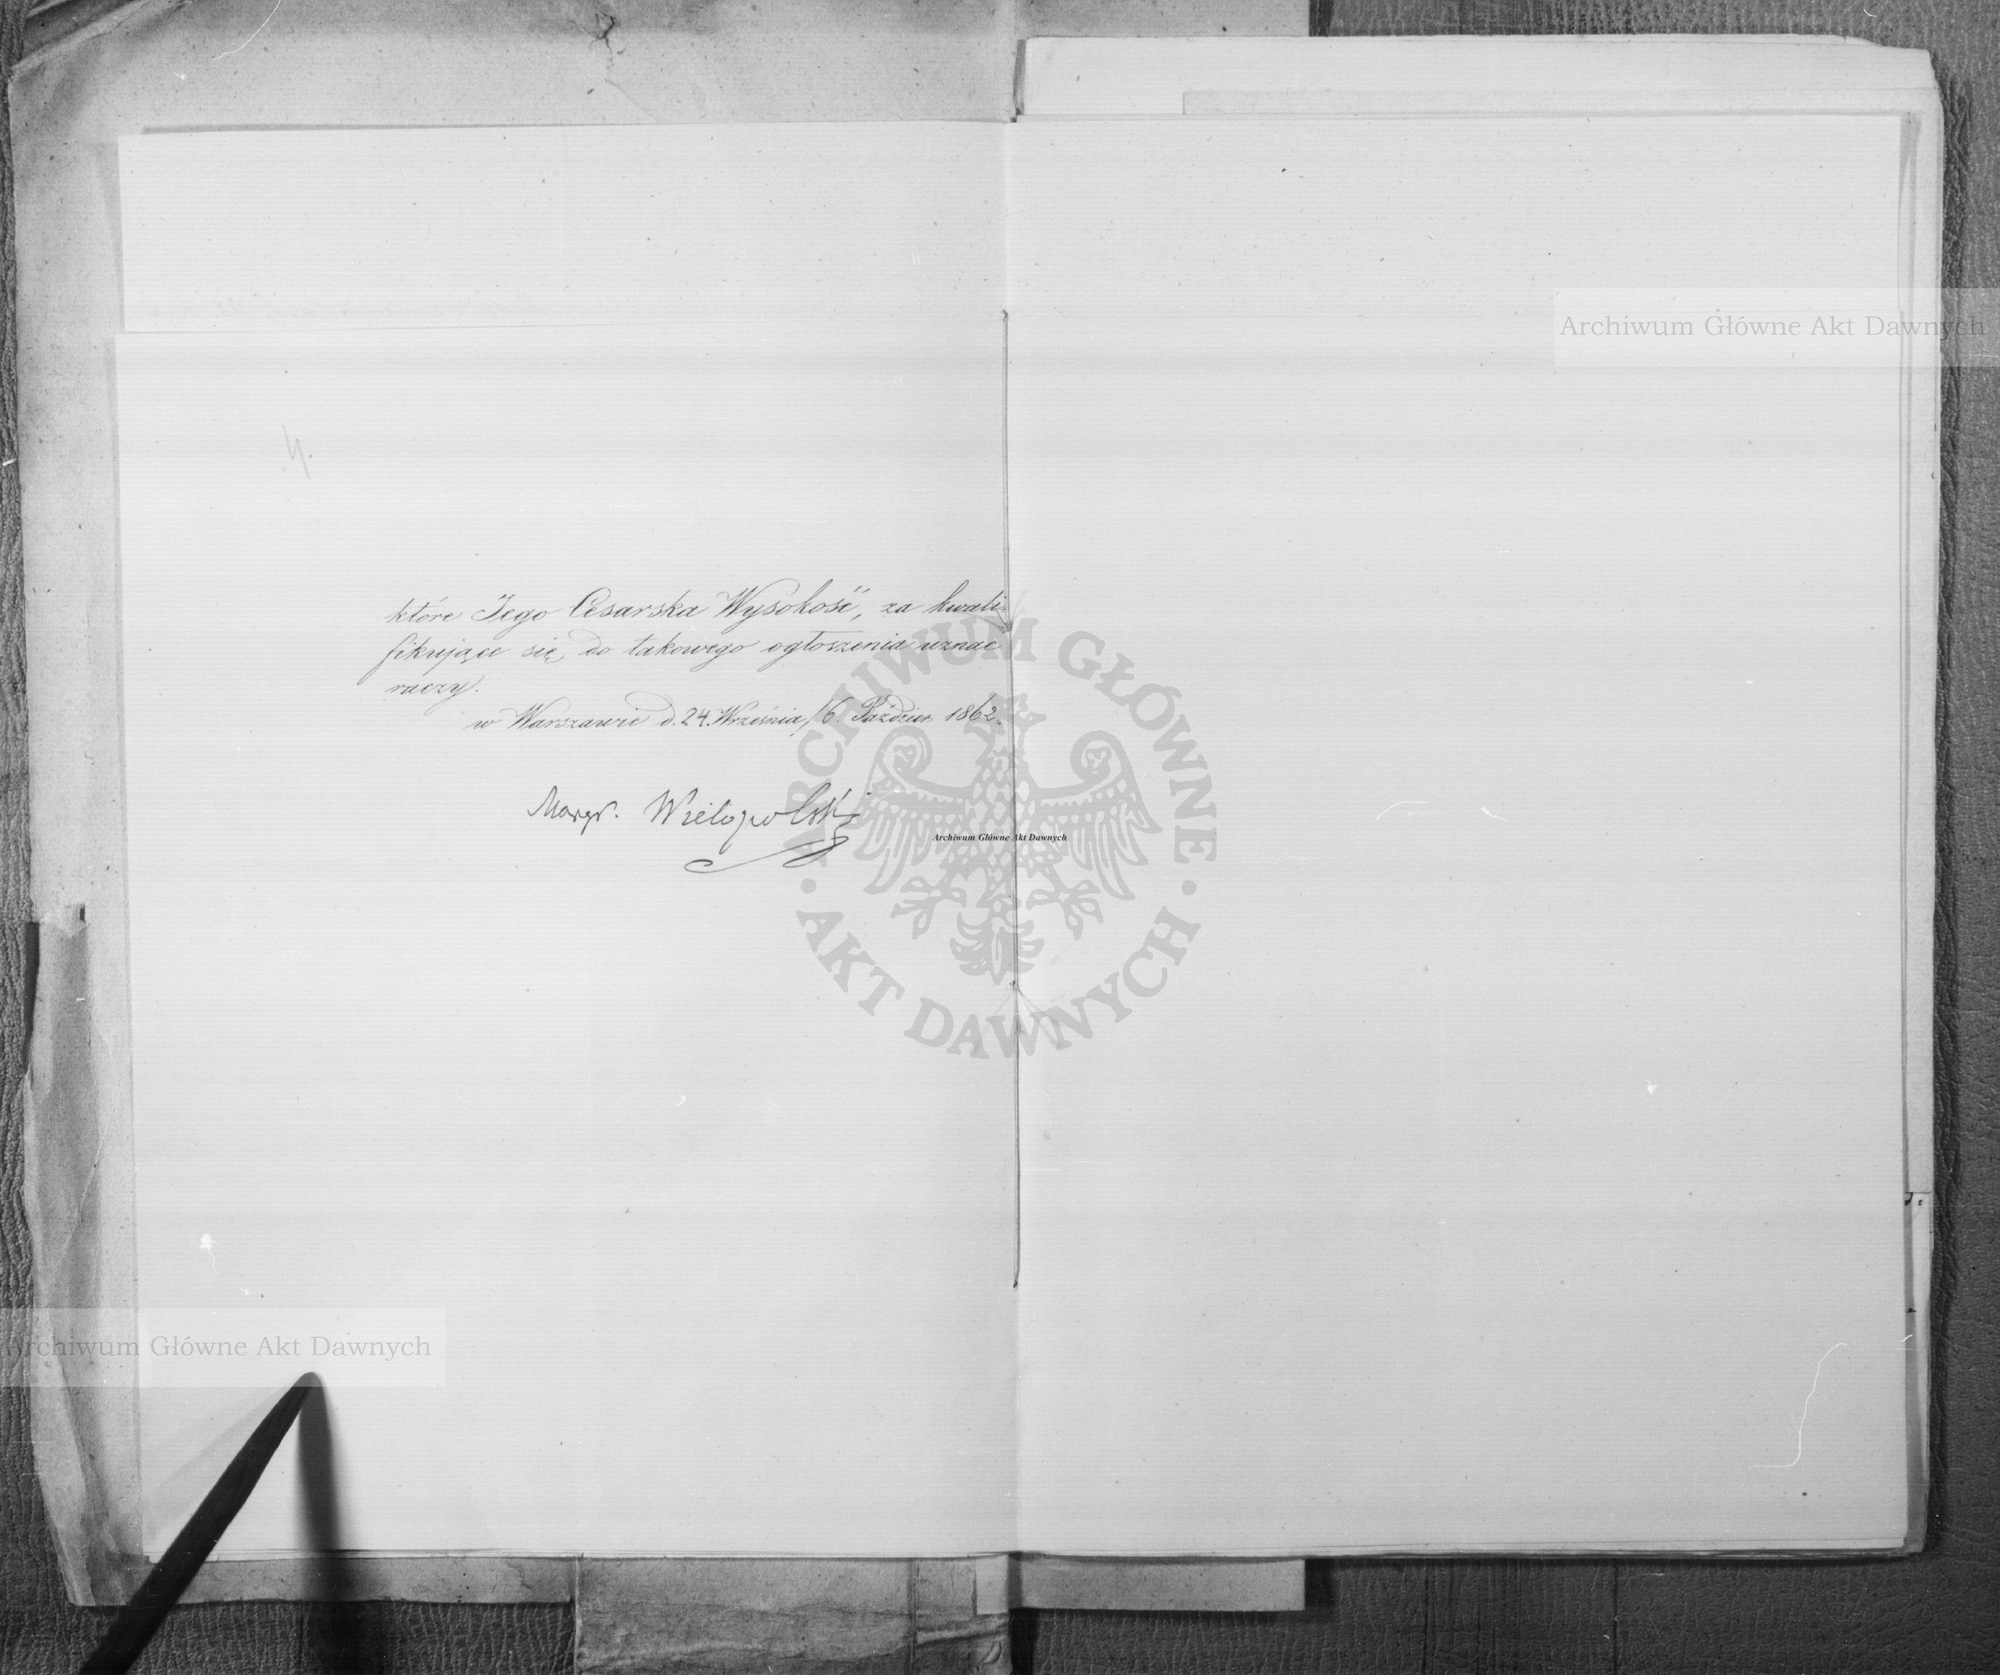 Archiwum Główne Akt Dawnych
które Jego Cesarska Wysokość, za kwali-
fikujące się do takowego ogłoszenia uznać
raczy.
w Warszawie d. 24. Września/6 Paździer. 1862.
Margr. Wielopolski
ARCHIWUM GŁÓWNE
Archiwum Główne Akt Dawnych
AKT DAWNYCH
Archiwum Główne Akt Dawnych